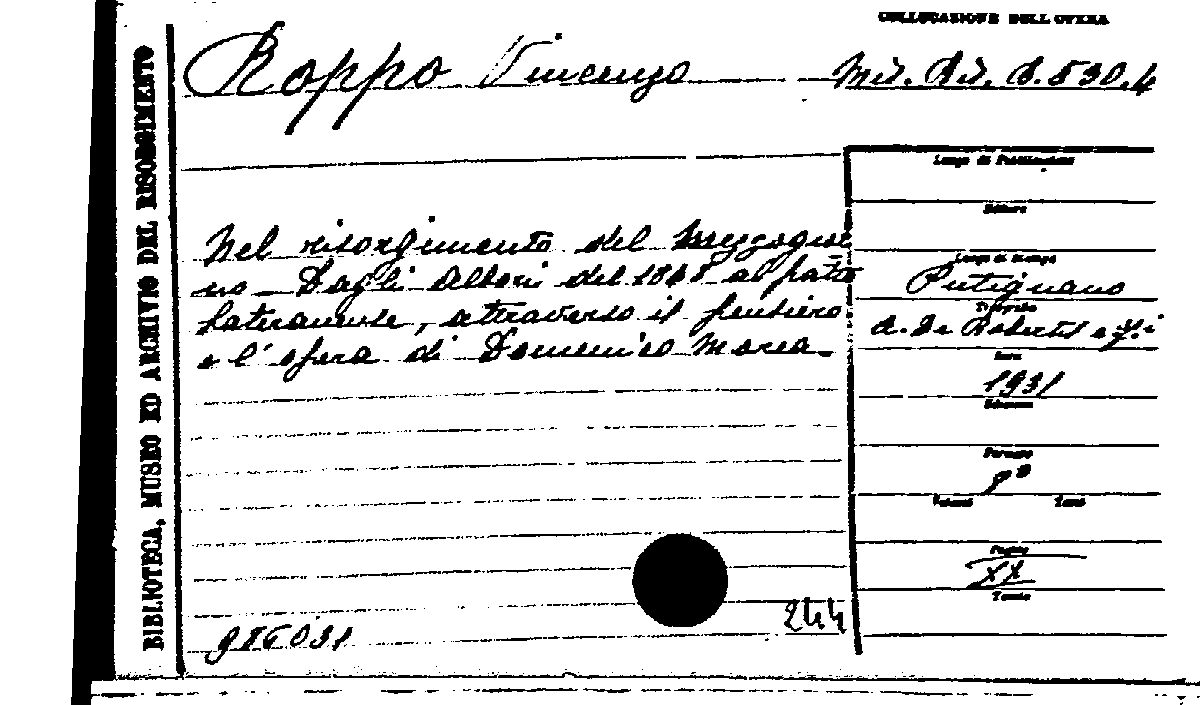 COLLOCAZIONE DELL'OPERA
Roppo Vincenzo
Mis. Ris. B. 530.4
BIBLIOTECA, MUSEO ED ARCHIVIO DEL RISORGIMENTO
Nel risorgimento del Mezzogior
no - Dagli Albori del 1848 al patto
lateranense, attraverso il pensiero
e l'opera di Domenico Morea.
Luogo di Pubblicazione
Editore
Luogo di Stampa
Putignano
Tipografia
A. De Robertis e f.i
Data
1931
Edizione
Formato
8º
Volumi
Tomi
Pagine
XX
Tavole
244